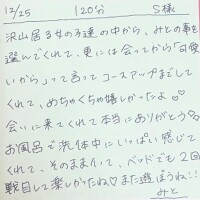 12/25 120分 S様
沢山居る女の子達の中から、みとの事を
選んでくれて、更には会ってから「可愛
いから」って言ってコースアップまでして
くれて、めちゃくちゃ嬉しかったよ♡
会いに来てくれて本当にありがとう♡
お風呂で洗体中にいっぱい感じて
くれて、そのままイって、ベッドでも2回
戦目して楽しかったね♡また遊ぼうね!!
みと